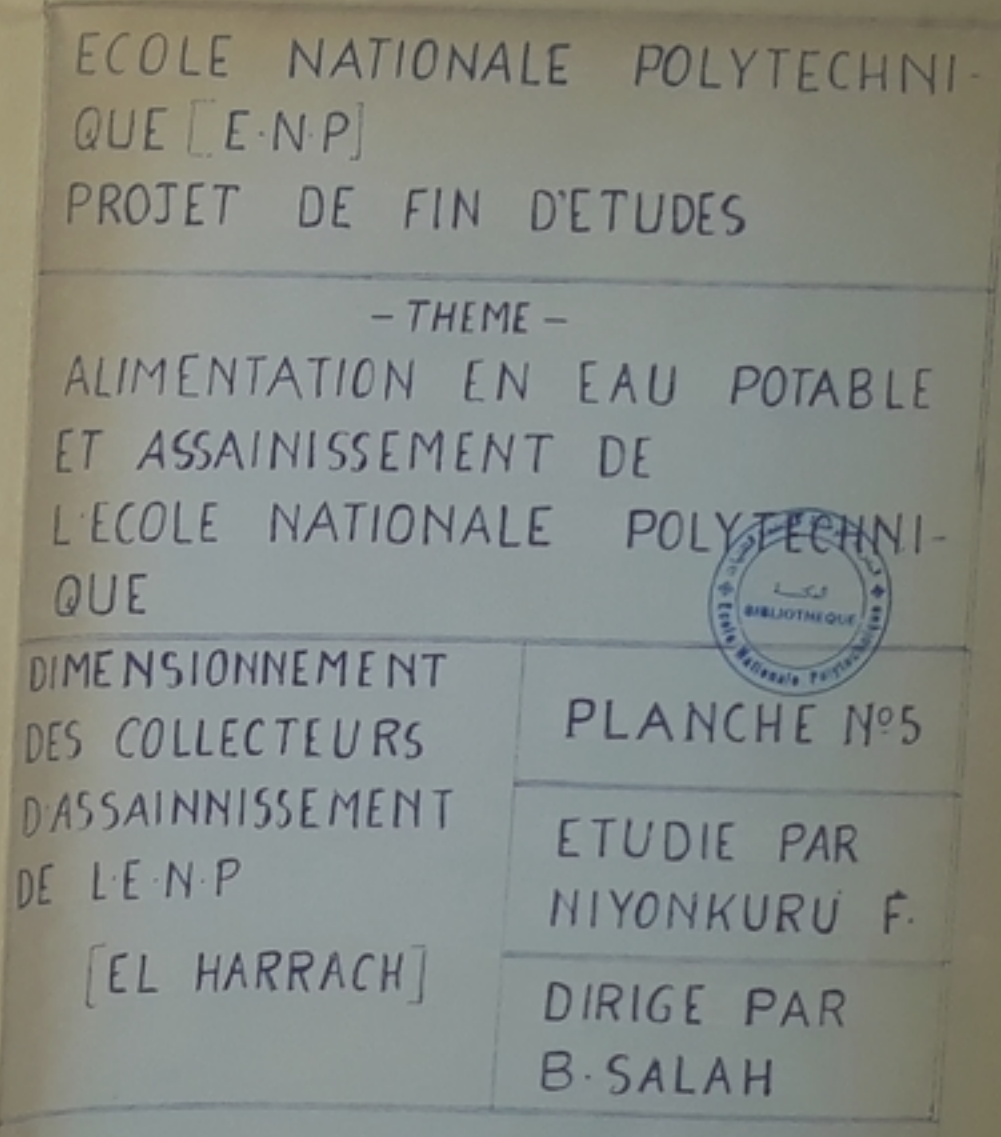 ECOLE NATIONALE POLYTECHNI-
QUE [E.N.P]
PROJET DE FIN D'ETUDES
- THEME -
ALIMENTATION EN EAU POTABLE
ET ASSAINISSEMENT DE
L'ECOLE NATIONALE POLYTECHNI-
QUE
المكتبة
BIBLIOTHEQUE
Ecole Nationale Polytechnique
DIMENSIONNEMENT
DES COLLECTEURS
D'ASSAINNISSEMENT
DE L'E.N.P
[EL HARRACH]
PLANCHE Nº5
ETUDIE PAR
NIYONKURU F.
DIRIGE PAR
B. SALAH